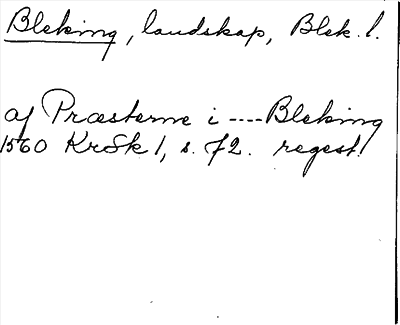 Bleking, landskap, Blek. l.
af Præsterne i ---- Bleking
1560 KrSk 1, s. 72. regest!